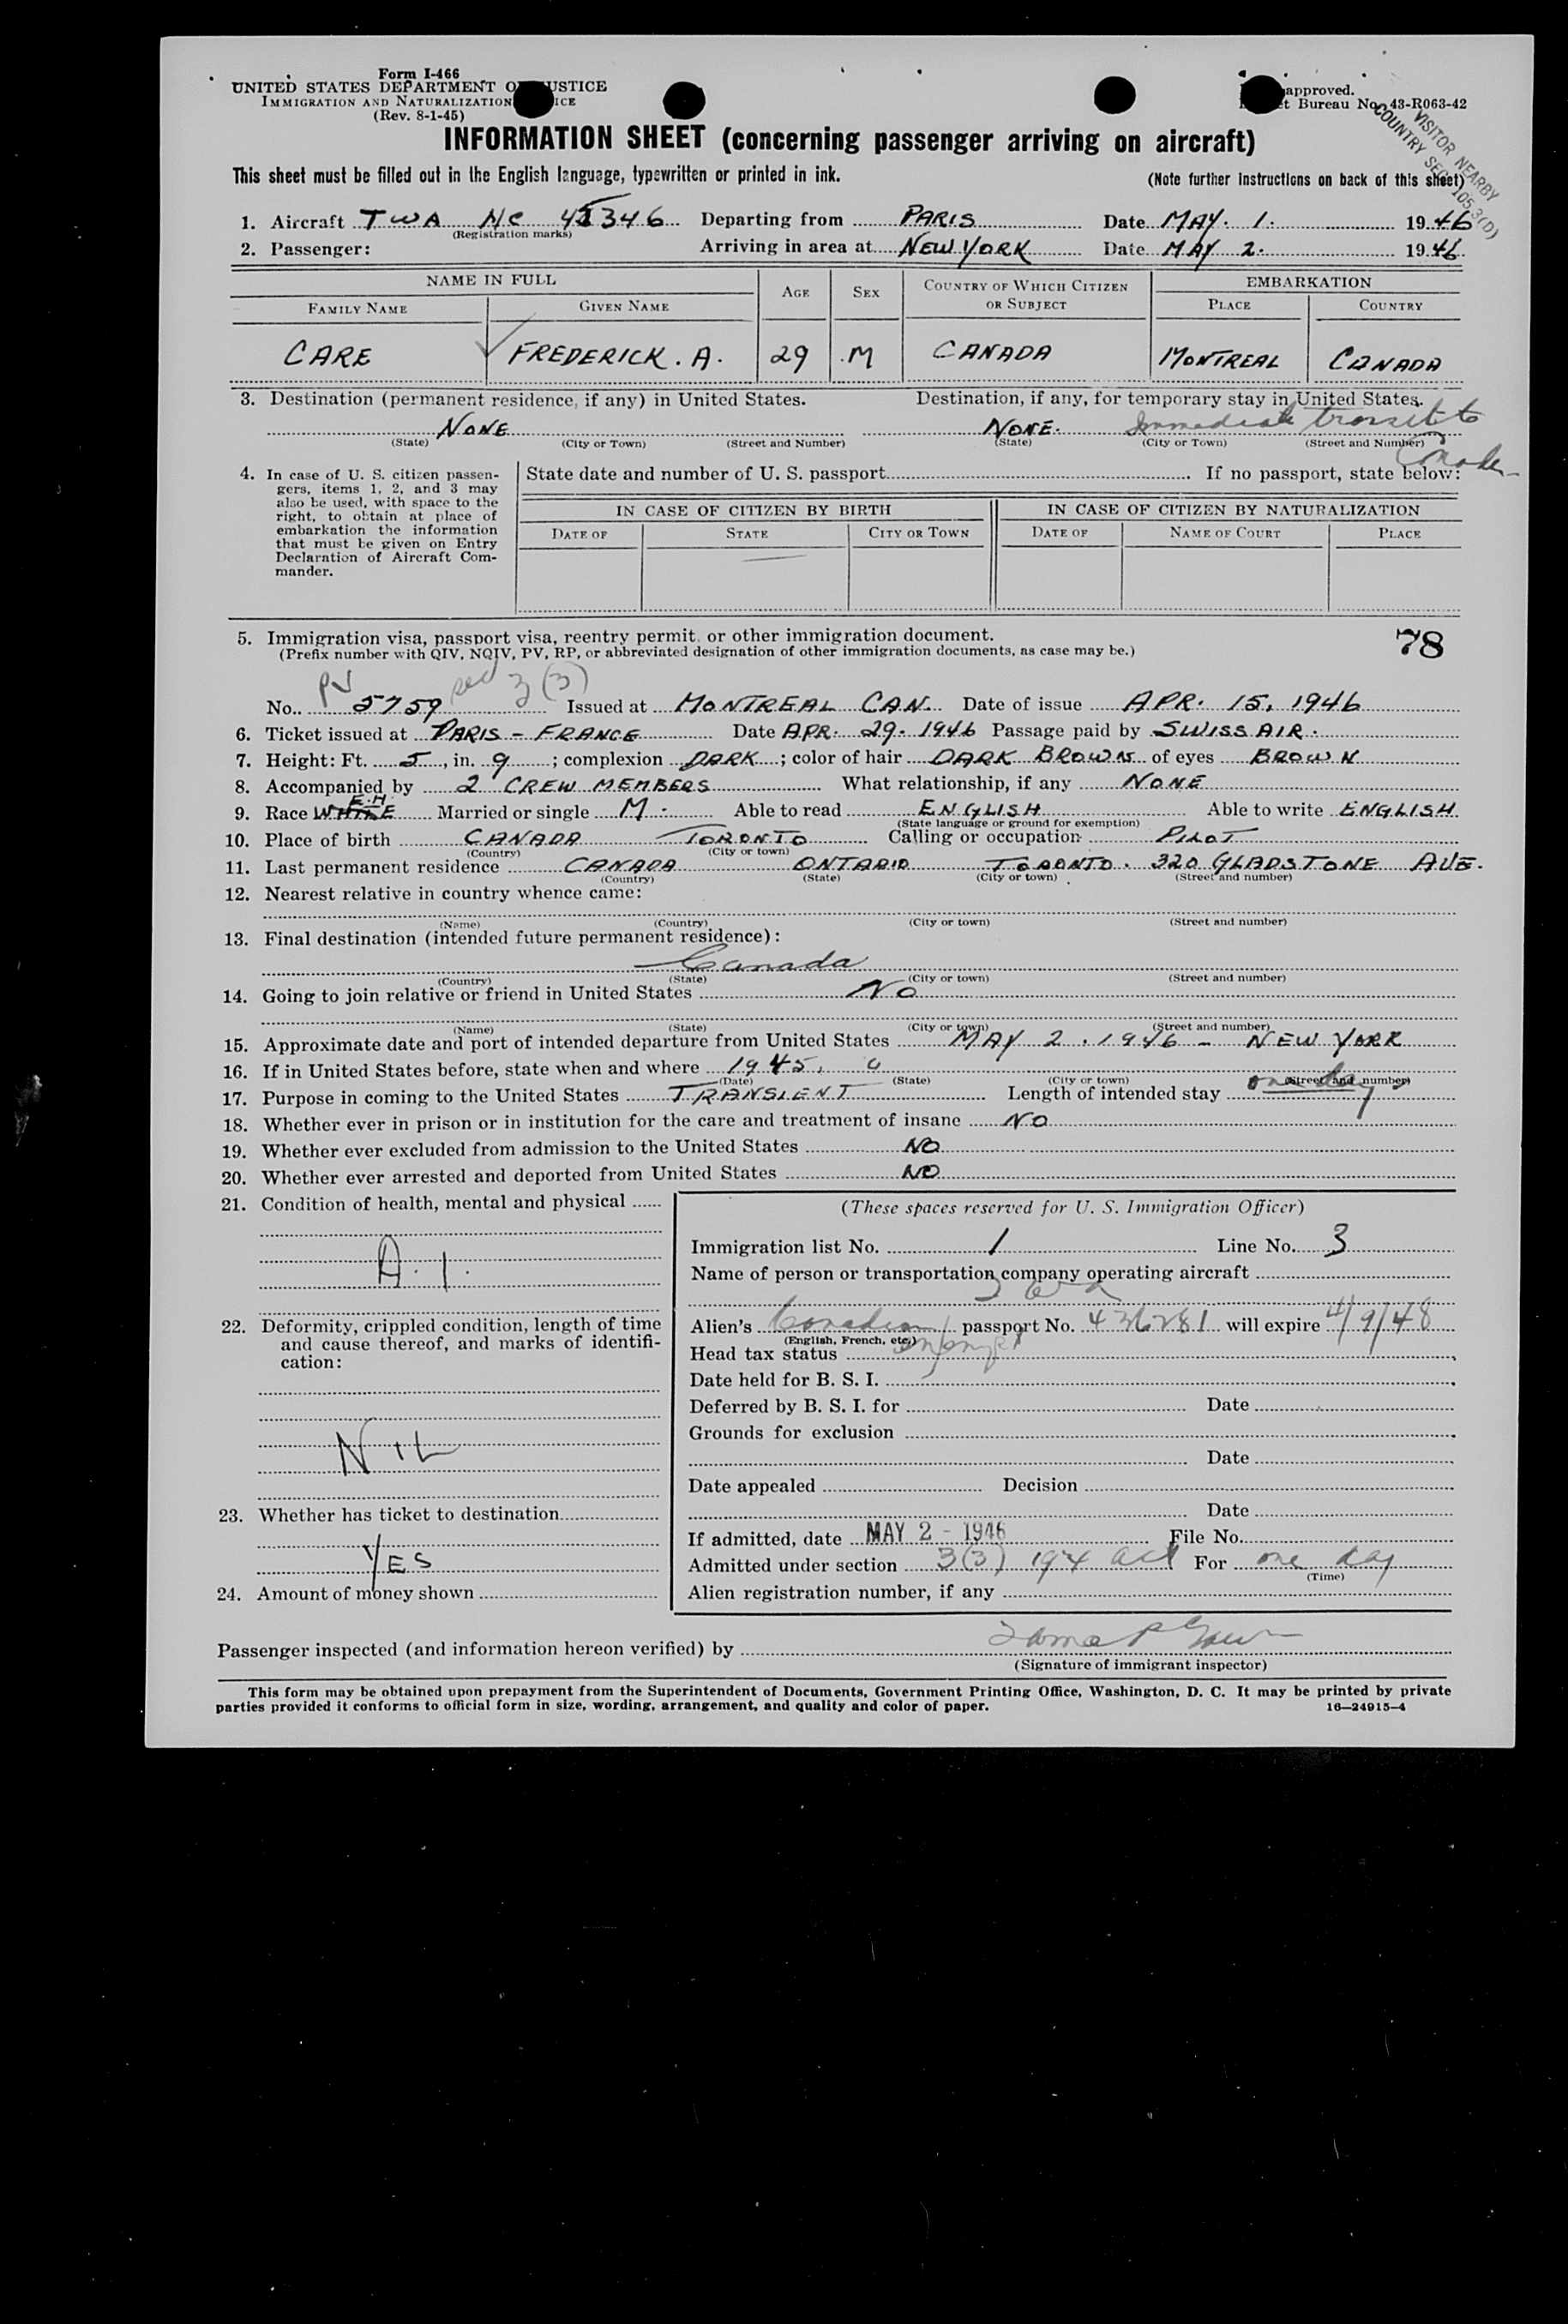 Form I-466
UNITED STATES DEPARTMENT OF JUSTICE
IMMIGRATION AND NATURALIZATION
(Rev. 8-1-45)
approved.
Bureau No. 43-R063-42
VISITOR NEARBY
COUNTRY SEC. 105.3(D)
INFORMATION SHEET (concerning passenger arriving on aircraft)
This sheet must be filled out in the English language, typewritten or printed in ink.
(Note further instructions on back of this sheet)
1. Aircraft TWA NC 45346 Departing from PARIS Date MAY. 1. 1946
(Registration marks)
2. Passenger: Arriving in area at NEW YORK Date MAY 2. 1946
NAME IN FULL AGE SEX COUNTRY OF WHICH CITIZEN OR SUBJECT EMBARKATION
FAMILY NAME GIVEN NAME PLACE COUNTRY
CARE FREDERICK. A. 29 M CANADA MONTREAL CANADA
3. Destination (permanent residence, if any) in United States. Destination, if any, for temporary stay in United States.
NONE NONE. Immediate transit to Canada
(State) (City or Town) (Street and Number) (State) (City or Town) (Street and Number)
4. In case of U. S. citizen passengers, items 1, 2, and 3 may also be used, with space to the right, to obtain at place of embarkation the information that must be given on Entry Declaration of Aircraft Commander.
State date and number of U. S. passport If no passport, state below:
IN CASE OF CITIZEN BY BIRTH IN CASE OF CITIZEN BY NATURALIZATION
DATE OF STATE CITY OR TOWN DATE OF NAME OF COURT PLACE
5. Immigration visa, passport visa, reentry permit, or other immigration document.
78
(Prefix number with QIV, NQIV, PV, RP, or abbreviated designation of other immigration documents, as case may be.)
PV sec 3 (3)
No. 5759 Issued at MONTREAL CAN. Date of issue APR. 15, 1946
6. Ticket issued at PARIS - FRANCE Date APR. 29. 1946 Passage paid by SWISS AIR.
7. Height: Ft. 5, in. 9; complexion DARK; color of hair DARK BROWN of eyes BROWN
8. Accompanied by 2 CREW MEMBERS What relationship, if any NONE
9. Race WHITE Married or single M. Able to read ENGLISH Able to write ENGLISH
(State language or ground for exemption)
10. Place of birth CANADA TORONTO Calling or occupation PILOT
(Country) (City or town)
11. Last permanent residence CANADA ONTARIO TORONTO. 320 GLADSTONE AVE.
(Country) (State) (City or town) (Street and number)
12. Nearest relative in country whence came:
(Name) (Country) (City or town) (Street and number)
13. Final destination (intended future permanent residence):
Canada
(Country) (State) (City or town) (Street and number)
14. Going to join relative or friend in United States NO
(Name) (State) (City or town) (Street and number)
15. Approximate date and port of intended departure from United States MAY 2. 1946 - NEW YORK
16. If in United States before, state when and where 1945.
(Date) (State) (City or town) (Street and number)
17. Purpose in coming to the United States TRANSIENT Length of intended stay one day
18. Whether ever in prison or in institution for the care and treatment of insane NO
19. Whether ever excluded from admission to the United States NO
20. Whether ever arrested and deported from United States NO
21. Condition of health, mental and physical
A.1.
22. Deformity, crippled condition, length of time and cause thereof, and marks of identification:
NIL
23. Whether has ticket to destination
YES
24. Amount of money shown
(These spaces reserved for U. S. Immigration Officer)
Immigration list No. 1 Line No. 3
Name of person or transportation company operating aircraft
Alien's Canadian passport No. 436281 will expire 4/9/48
(English, French, etc.)
Head tax status
Date held for B. S. I.
Deferred by B. S. I. for Date
Grounds for exclusion
Date
Date appealed Decision
Date
If admitted, date MAY 2 - 1946 File No.
Admitted under section 3(3) 1924 act For one day
(Time)
Alien registration number, if any
Passenger inspected (and information hereon verified) by
(Signature of immigrant inspector)
This form may be obtained upon prepayment from the Superintendent of Documents, Government Printing Office, Washington, D. C. It may be printed by private
parties provided it conforms to official form in size, wording, arrangement, and quality and color of paper.
16—24915-4